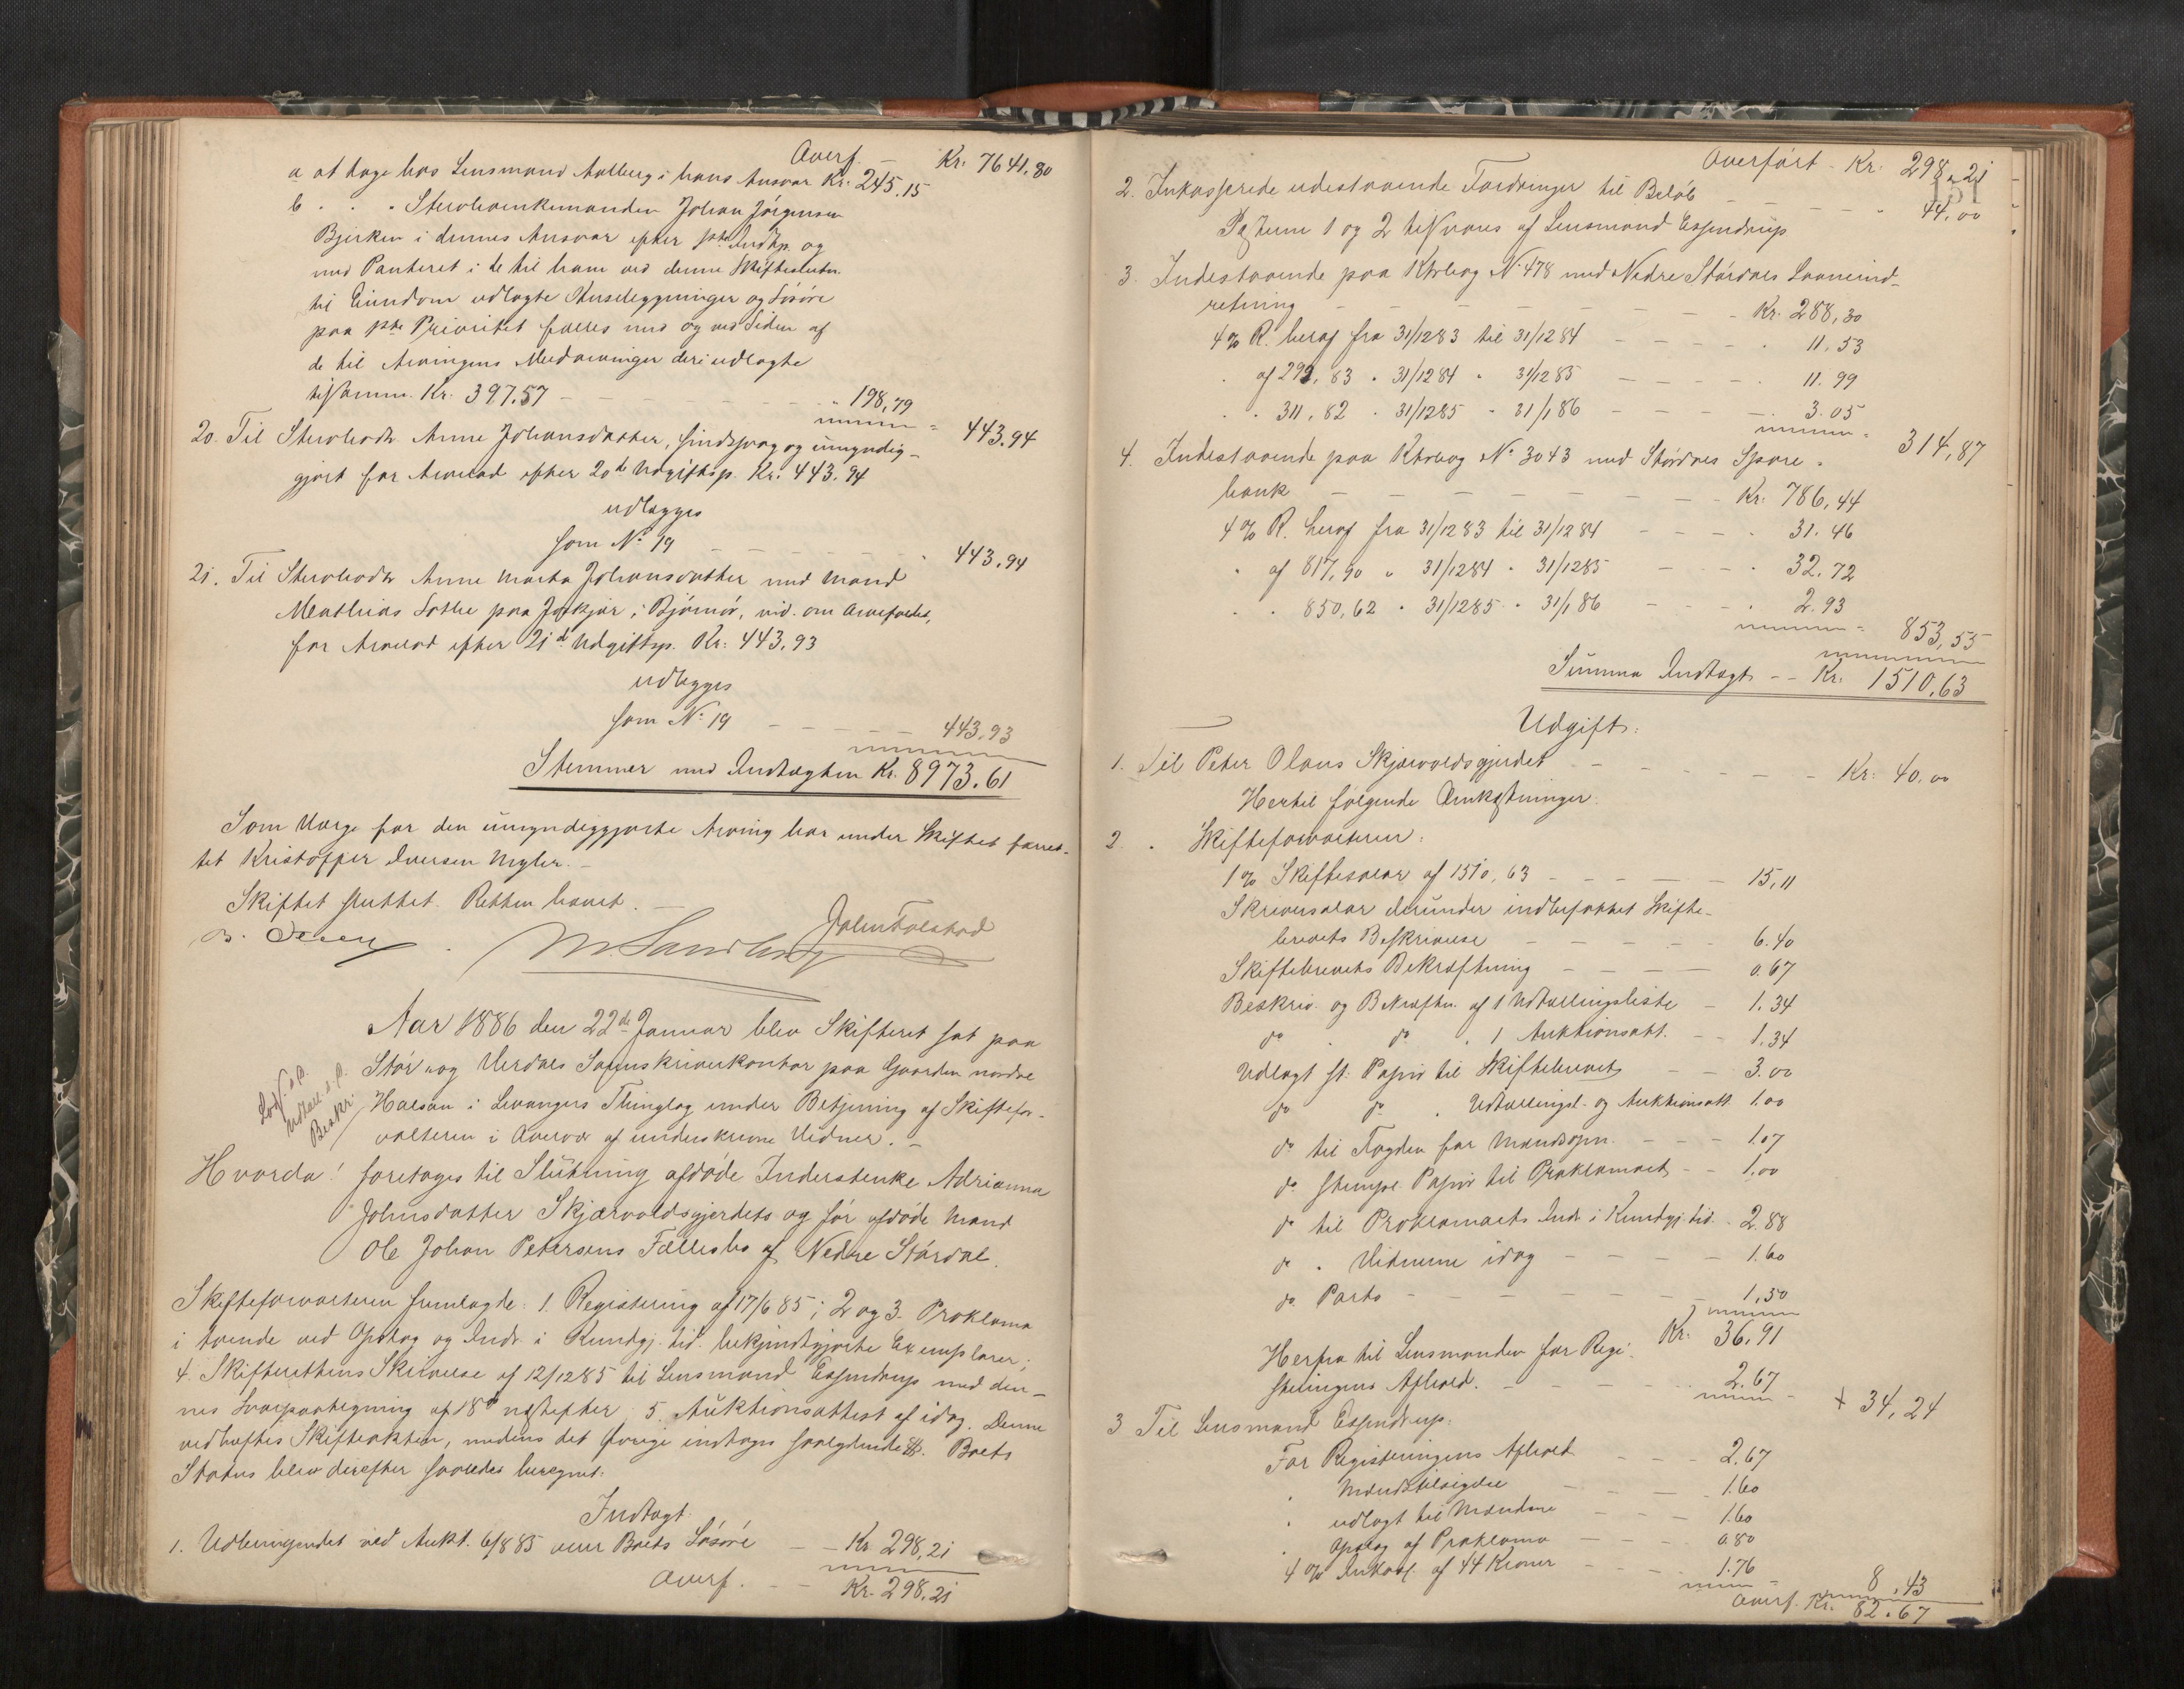 Overf. — Kr. 7641,80
a at tage hos Lensmand Aalberg i hans Ansvar Kr. 245.15
b " " " Stervboenkemanden Johan Jørgensen
Bjerken i dennes Ansvar efter 1ste Indtp. og
med Panteret i de til ham ved denne Skifteslutn.
til Eiendom udlagte Huseleggninger og Løsøre
paa 1ste Prioritet fælles med og ved Siden af
de til Arvingens Medarvinger deri udlagte
tilsamm. Kr. 397.57 — — — " 198,79
443.94
20. Til Stervbodtr Anne Johansdatter, sindssvag og umyndig-
gjort for Arvelod efter 20de Udgiftsp. Kr. 443.94
udlægges
som No 19 — — — " 443,94
21. Til Stervbodtr Anne Marta Johansdatter med Mand
Mathias Sotbe paa i Bjørnør, vid. om Arvefaldet,
for Arvelod efter 21de Udgiftsp. Kr. 443,93
udlægges
som No 19 — — — 443,93
Stemmer med Indtægten Kr. 8973.61
Som Værge for den umyndiggjorte Arving har under Skiftet forret-
tet Kristoffer Iversen Myler. —
Skiftet sluttet. Retten hævet. —
John Folstad
M. Sandberg
Aar 1886 den 22de Januar blev Skifteret sat paa
Stør- og Værdals Sorenskriverkontor paa Gaarden nordre
Halsan i Levangers Thinglag under Betjening af Skiftefor-
valteren i Overvær af underskrevne Vidner. —
Hvorda! foretoges til Slutning afdøde Inderstenke Adrianna
Johnsdatter Skjærvoldsgjerdets og før afdøde Mand
Ole Johan Petersens Fællesbo af Nedre Stördal.
Skifteforvalteren fremlagde: 1. Registering af 17/6 85; 2 og 3. Proklama
i tvende ved Opslag og Indr. i Kundgj. tid. bekjendtgjorte Exemplarer;
4. Skifterettens Skrivelse af 12/12 85 til Lensmand Essendrup med den-
nes Svarpaategning af 18de næstefter; 5. Auktionsattest af idag. Denne
vedhæftes Skifteakten, medens det Øvrige indtages saalydende #. Boets
Status blev derefter saaledes beregnet:
Indtægt.
1. Udbringendet ved Aukt. 6/8 85 over Boets Løsøre — — Kr. 298,21
Overf. — — Kr. 298.21
151
Overført — Kr. 298,21
2. Inkasserede udestaaende Fordringer til Beløb — — — " 44,00
Posterne 1 og 2 tilsvares af Lensmand Essendrup
3. Indestaaende paa Ktrbog No 478 med Nedre Stördals Laaneind-
retning — — — Kr. 288,30
4% R. heraf fra 31/12 83 til 31/12 84 — — — " 11.53
" af 299,83 " 31/12 84 " 31/12 85 — — — " 11.99
" " 311,82 " 31/12 85 " 31/1 86 — — — " 3.05
314,87
4. Indestaaende paa Ktrbog No 3043 med Stördals Spare-
bank — — — Kr. 786,44
4% R. heraf fra 31/12 83 til 31/12 84 — — " 31.46
" af 817,90 " 31/12 84 " 31/12 85 — — " 32.72
" " 850,62 " 31/12 85 " 31/1 86 — — " 2.93
853,55
Summa Indtægt — — Kr. 1510,63
Udgift:
1. Til Peter Olaus Skjærvoldsgjerdet — — — Kr. 40,00
Hertil følgende Omkostninger:
2. " Skifteforvalteren:
1% Skiftesalær af 1510,63 — — — 15,11
Skriversalær derunder indbefattet Skifte-
brevets Beskrivelse — — — 6.40
Skiftebrevets Bekræftning — — — 0.67
Beskriv. og Bekræftn. af 1 Udtællingsliste — 1.34
do " do " 1 Auktionsatt. — — 1.34
Udlagt st. Papir til Skiftebrevet — — 3.00
do do " Udtællingsl. og Auktionsatt. 1.00
do til Fogden for Mandsopn. — — — 1.07
do stempl. Papir til Proklamaet — — 1,00
do til Proklamaets Indr. i Kundgj. tid. — 2.88
do " Vidnerne idag — — — 1.60
do Porto — — — 1,50
Kr. 36,91
Herfra til Lensmanden for Regi-
steringens Afhold. — — — 2.67
34,24
3 Til Lensmand Essendrup:
For Registeringens Afhold — — — 2.67
" Mændstilsigelse — — — 1.60
" udlagt til Mændene — — — 1.60
" Opslag af Proklama — — — 0.80
4% Inkass. af 44 Kroner — — 1.76
8,43
Overf. Kr. 82.67